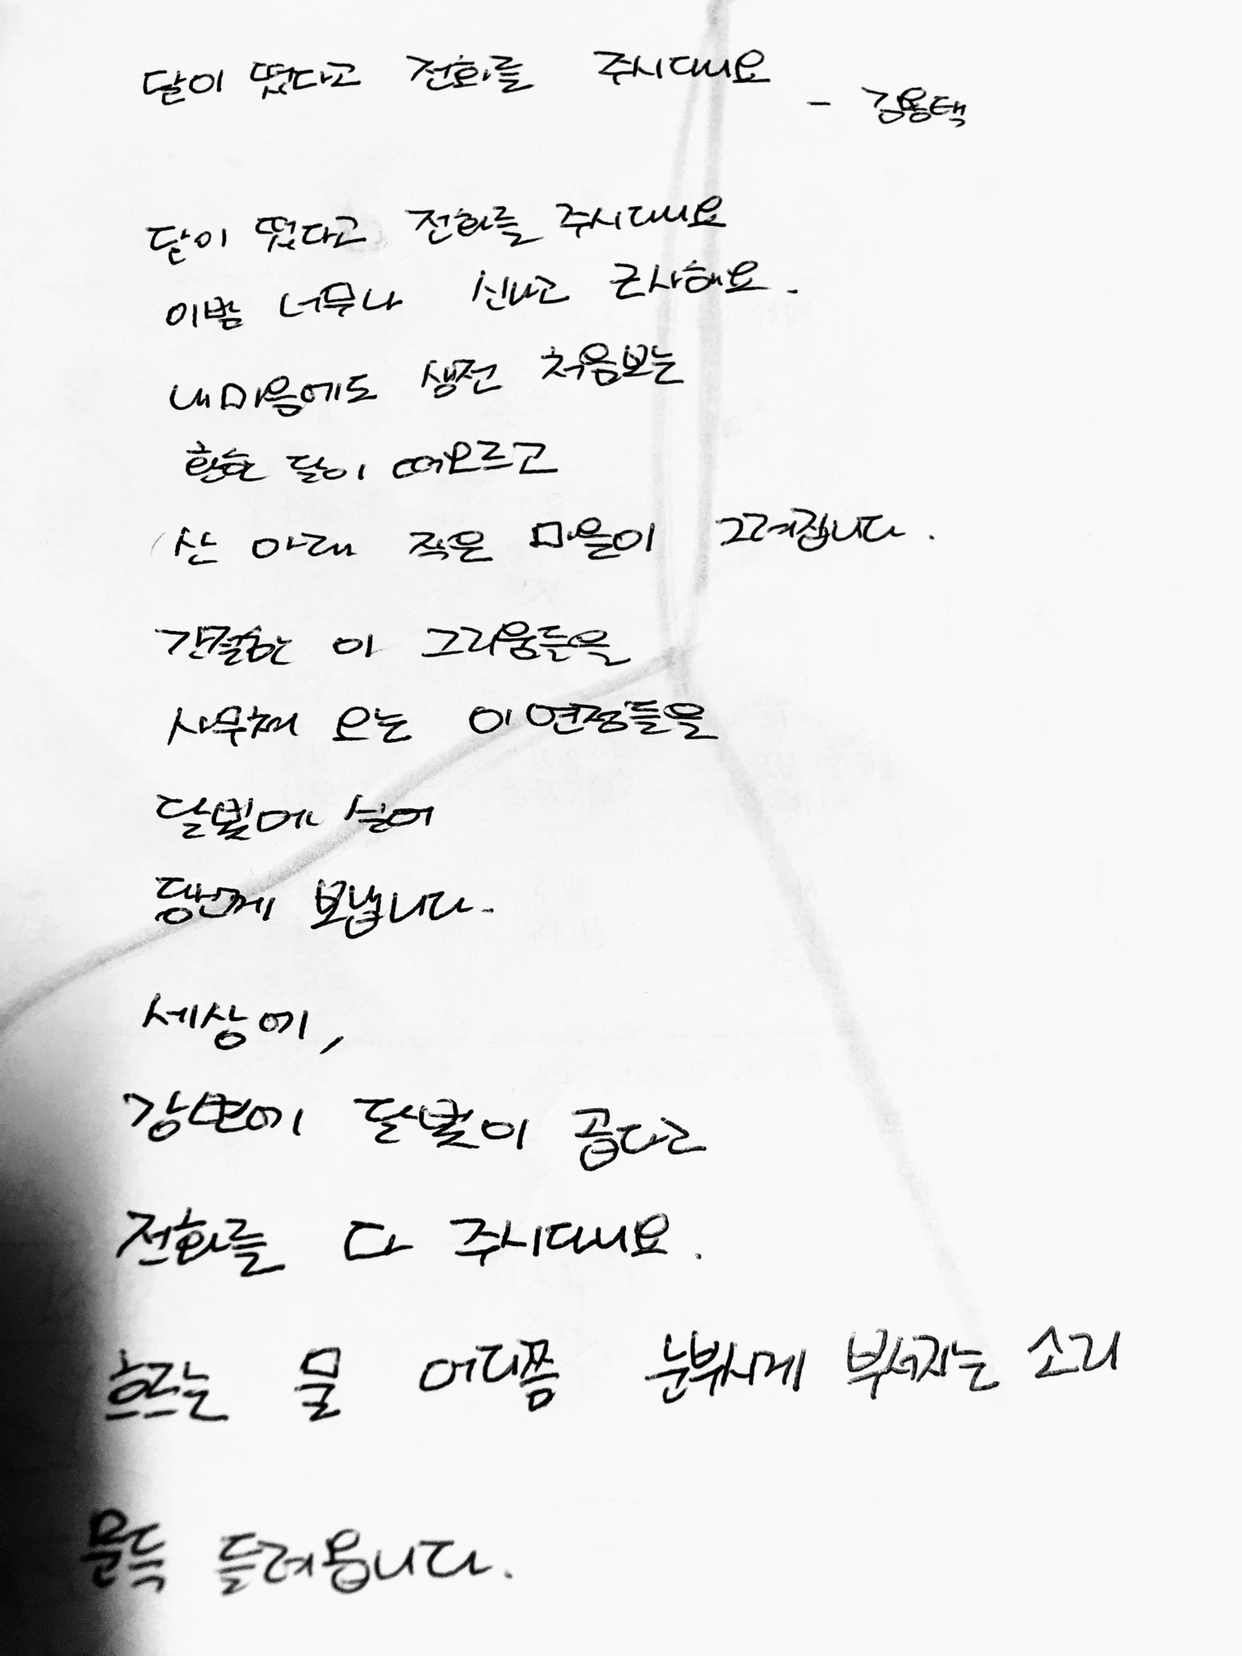 달이 떴다고 전화를 주시다니요
- 김용택
달이 떴다고 전화를 주시다니요
이밤 너무나 신나고 근사해요.
내마음에도 생전 처음보는
환한 달이 떠오르고
산 아래 작은 마을이 그려집니다.
간절한 이 그리움들을
사무쳐 오는 이 연정들을
달빛에 실어
당신께 보냅니다.
세상에,
강변에 달빛이 곱다고
전화를 다 주시다니요.
흐르는 물 어디쯤 눈부시게 부서지는 소리
문득 들려옵니다.